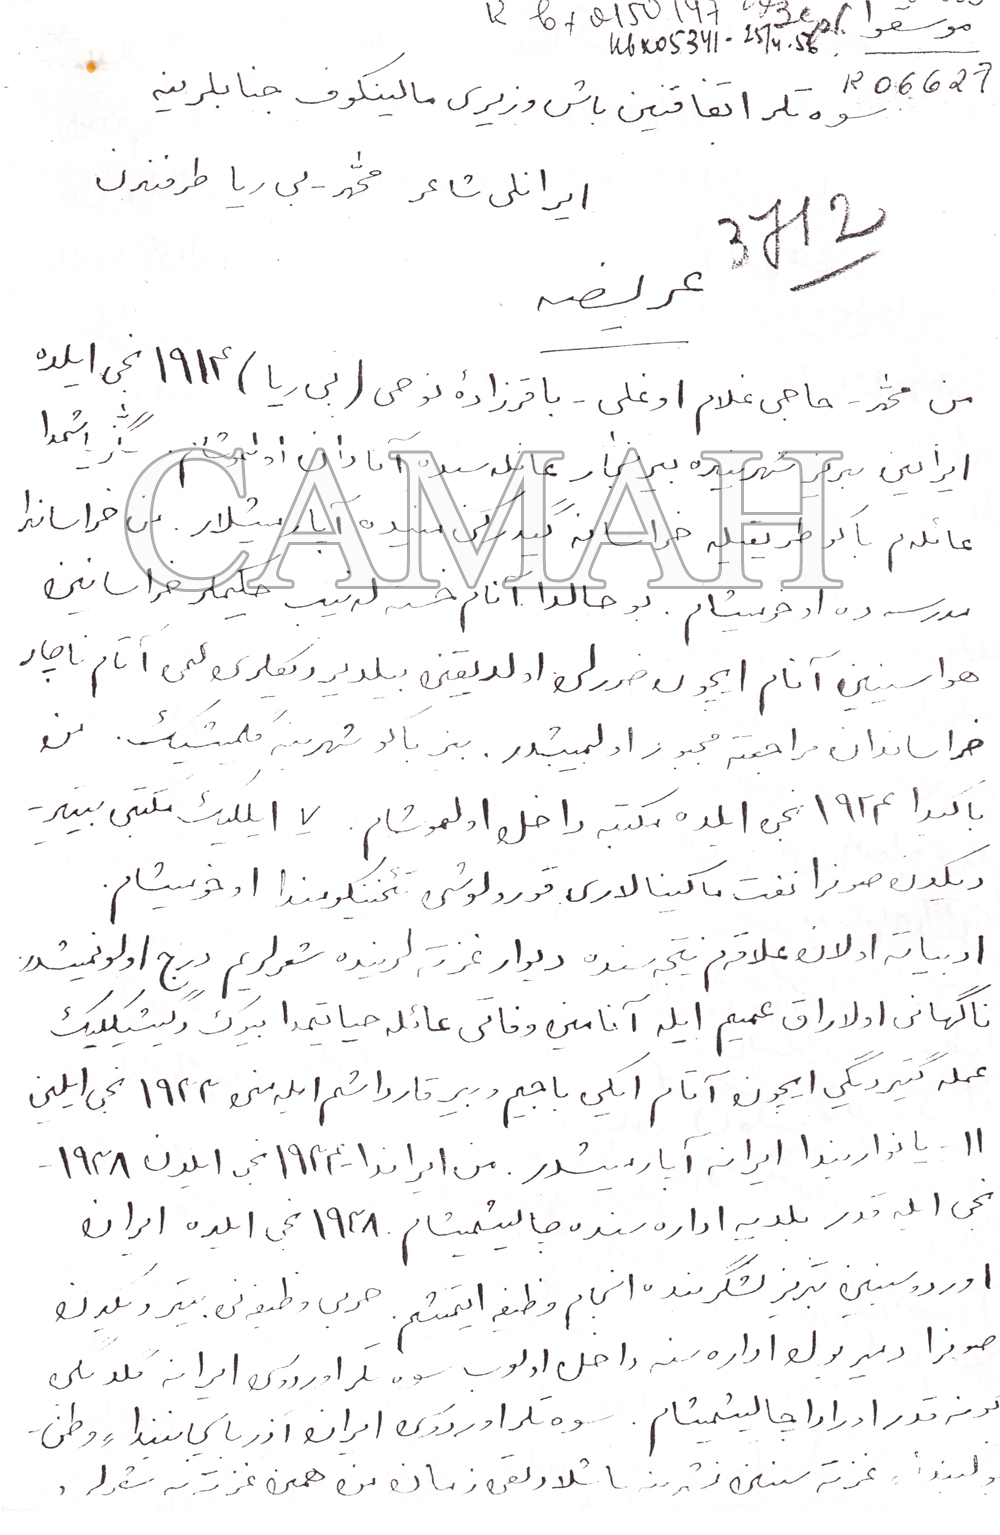 موسقوا
R 06627
3712
سوه تلر اتفاقنین باش وزیری مالینکوف جنابلرینه
ایرانلی شاعر محمّد - بی ریا طرفندن
عریضه
من محمّد - حاجی غلام اوغلی - باقرزادهٔ نوحی (بی ریا) ۱۹۱۴ نجی ایلده
ایرانین تبریز شهرینده بیر نجار عائله سنده آنادان اولموشام.
عائله م باکو طریقیله خراسانه گیدرکن منیده آپارمیشلار. من خراساندا
مدرسه ده اوخومیشام. بو حالدا آتام خسته له نیب حکیملر خراسانین
هواسینین آتام ایچون ضررلی اولدیقنی بیلدیردیکلری آتام ناچار
خراساندان مراجعته مجبور اولمیشدر. بیز باکو شهرینه گلمیشیک. من
باکیدا ۱۹۲۴ نجی ایلده مکتبه داخل اولموشام. ۷ ایللیک مکتبی بیتیر-
دیکدن صونرا نفت ماکینالاری قورولوشی تئخنیکومندا اوخومیشام.
ادبیاته اولان علاقه م نتیجه سنده دیوار غزته لرینده شعرلریم درج اولونمیشدر
ناگهانی اولاراق عمیم ایله آنامین وفاتی عائله حیاتمدا بیوک دگیشیکلیک
عمله گتیردیگی ایچون آتام ایکی باجیم و بیر قارداشم ایله منی ۱۹۳۲ نجی ایلین
۱۱ - یانواریندا ایرانه آپارمیشدر. من ایراندا نجی ایلدن ۱۹۳۸-
نجی ایله قدر بلدیه اداره سنده چالیشمیشام. ۱۹۳۸ نجی ایلده ایران
اوردوسینین تبریز لشگرینده انجام وظیفه ایتمیشم. حربی وظیفه نی بیتیردیکدن
صونرا دمیر یول اداره سنه داخل اولوب سوه تلر اوردوسی ایرانه گلدیگی
گونه قدر اورادا چالیشمیشام. سوه تلر اوردوسی ایران آذربایجانیندا «وطن-
یولیندا» غزته سینین نشرینه باشلادیقی زمان من همین غزته نه شعرلر
CAMAH